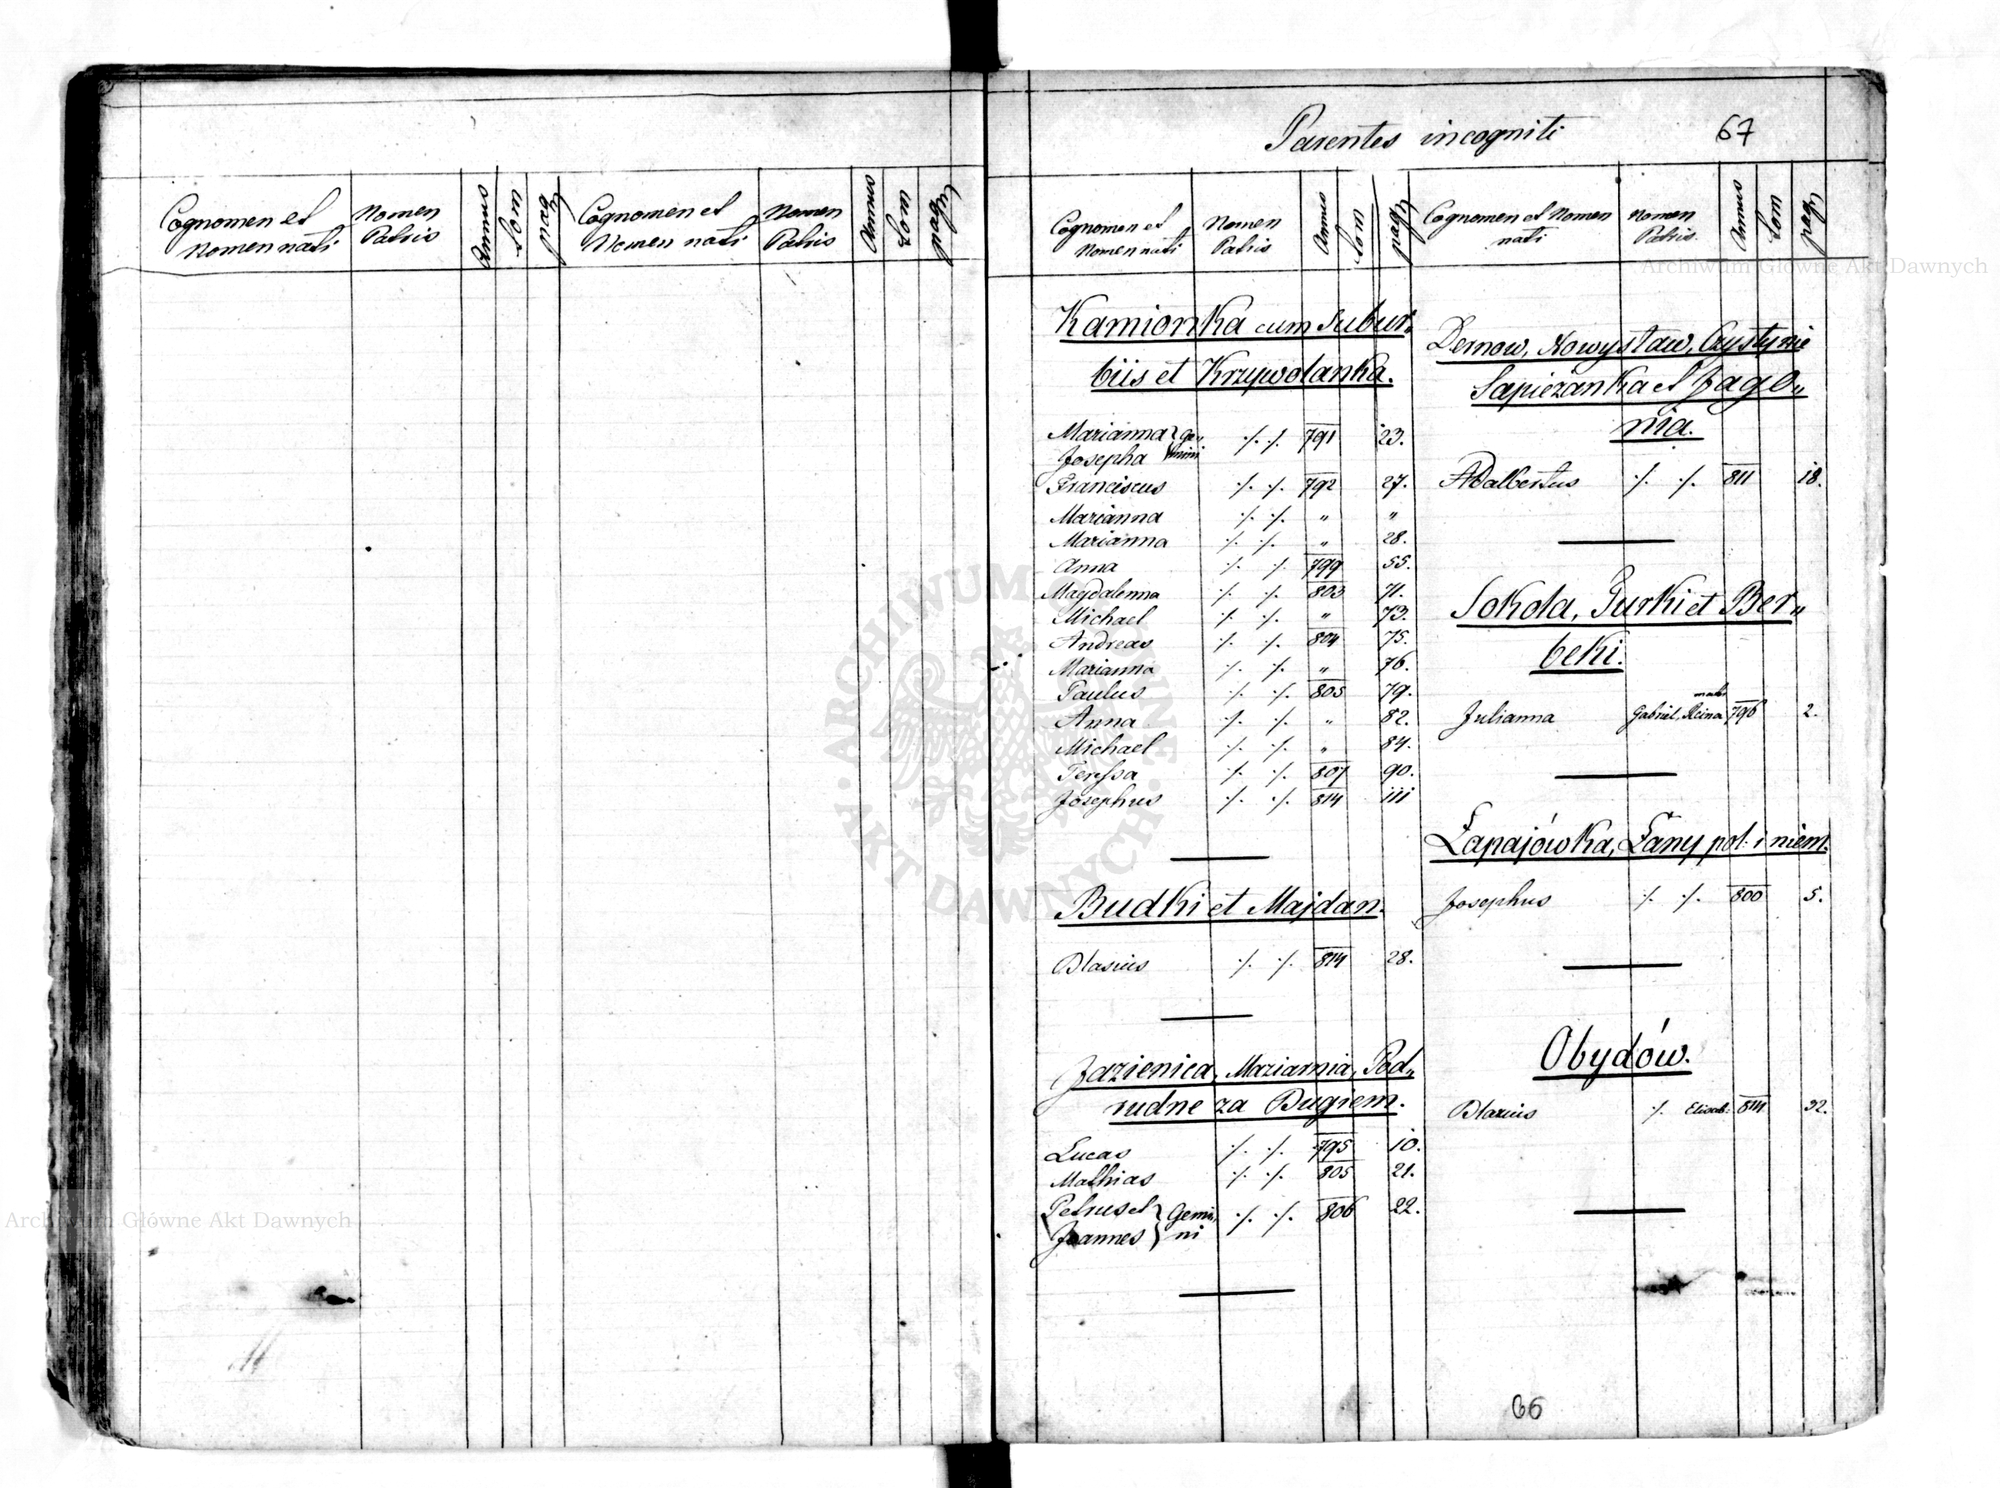 Cognomen et
Nomen nati
Nomen
Patris
Annus
Tom
pag.
Cognomen et
Nomen nati
Nomen
Patris
Annus
Tom
pag.
Parentes incogniti
67
Cognomen et
Nomen nati
Nomen
Patris
Annus
Tom
pag.
Cognomen et Nomen
nati
Nomen
Patris.
Annus
Tom
pag.
Kamionka cum Subur„
biis et Krzywolanka.
Marianna } ge„ ./. ./. 791 23.
Josepha } mini
Franciscus ./. ./. 792 27.
Marianna ./. ./. „ „
Marianna ./. ./. „ 28.
Anna ./. ./. 799 55.
Magdalenna ./. ./. 803 71.
Michael ./. ./. „ 73.
Andreas ./. ./. 804 75.
Marianna ./. ./. „ 76.
Paulus ./. ./. 805 79.
Anna ./. ./. „ 82.
Michael ./. ./. „ 84.
Teressa ./. ./. 807 90.
Josephus ./. ./. 814 111
Budki et Majdan.
Blasius ./. ./. 814 28.
Jazienica, Maziarnia, Pod„
rudne za Bugiem.
Lucas ./. ./. 795 10.
Mathias ./. ./. 805 21.
Petrus et } Gemi„ ./. ./. 806 22.
Joannes } ni
Dernow, Nowystaw, Czystynie
Sapiezanka et Jago„
nia.
Adalbertus ./. ./. 811 18.
Sokola, Turki et Ber„
beki.
Julianna Gabriel, Reina 796 2.
Łapajówka, Łany pol. i niem.
Josephus ./. ./. 800 5.
Obydów.
Blasius ./. Elisab: 814 32.
66
Archiwum Główne Akt Dawnych
Archiwum Główne Akt Dawnych
ARCHIWUM GŁÓWNE AKT DAWNYCH